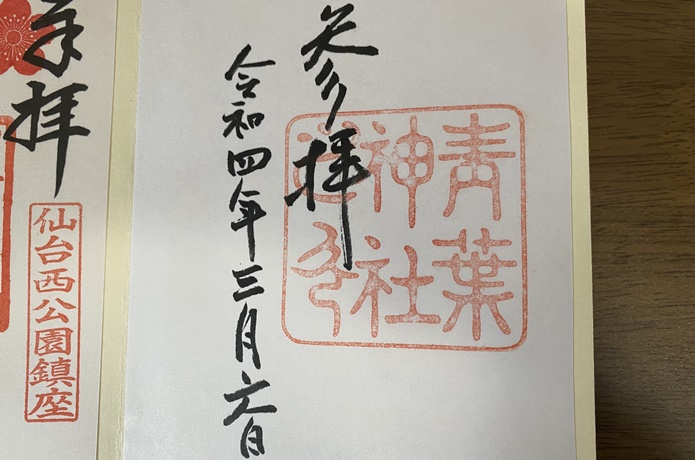 参拝
青葉
神社
令和四年三月六日
拝
仙台西公園鎮座